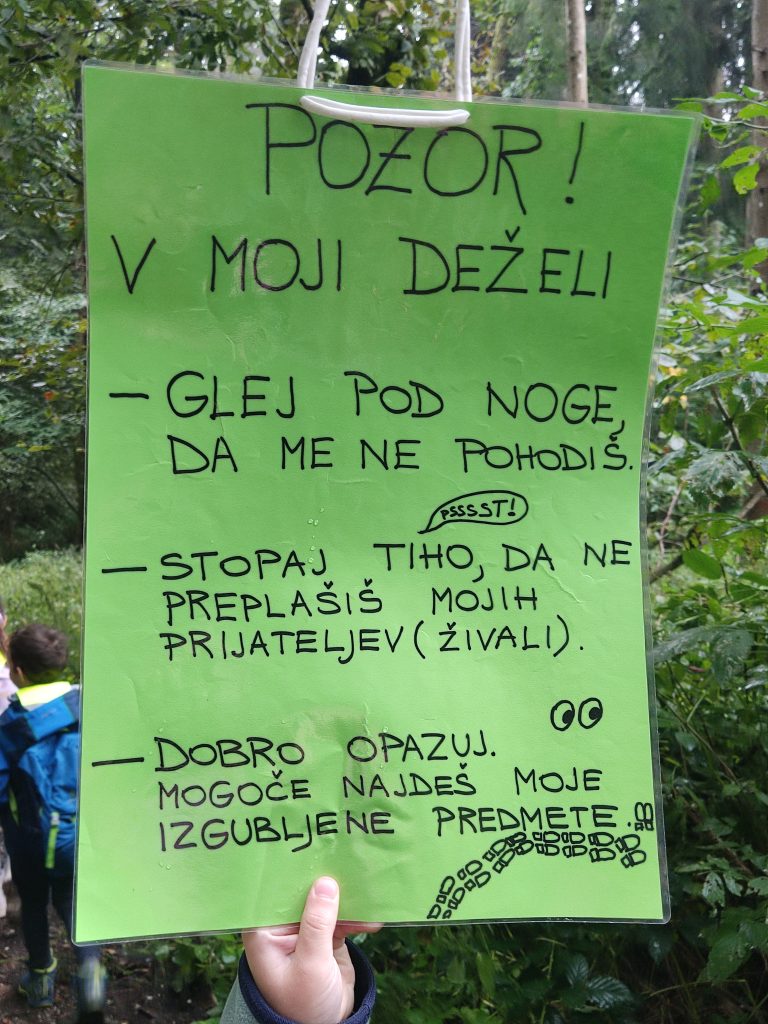 POZOR!
V MOJI DEŽELI
— GLEJ POD NOGE,
DA ME NE POHODIŠ.
PSSSST!
— STOPAJ TIHO, DA NE
PREPLAŠIŠ MOJIH
PRIJATELJEV (ŽIVALI).
— DOBRO OPAZUJ.
MOGOČE NAJDEŠ MOJE
IZGUBLJENE PREDMETE.